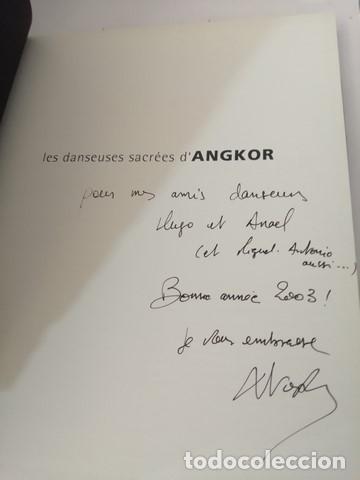 les danseuses sacrées d'ANGKOR
pour mes amis danseurs
Hugo et Anael
(et Miguel. Antonio
aussi...)
Bonne année 2003!
Je vous embrasse
todocoleccion.net